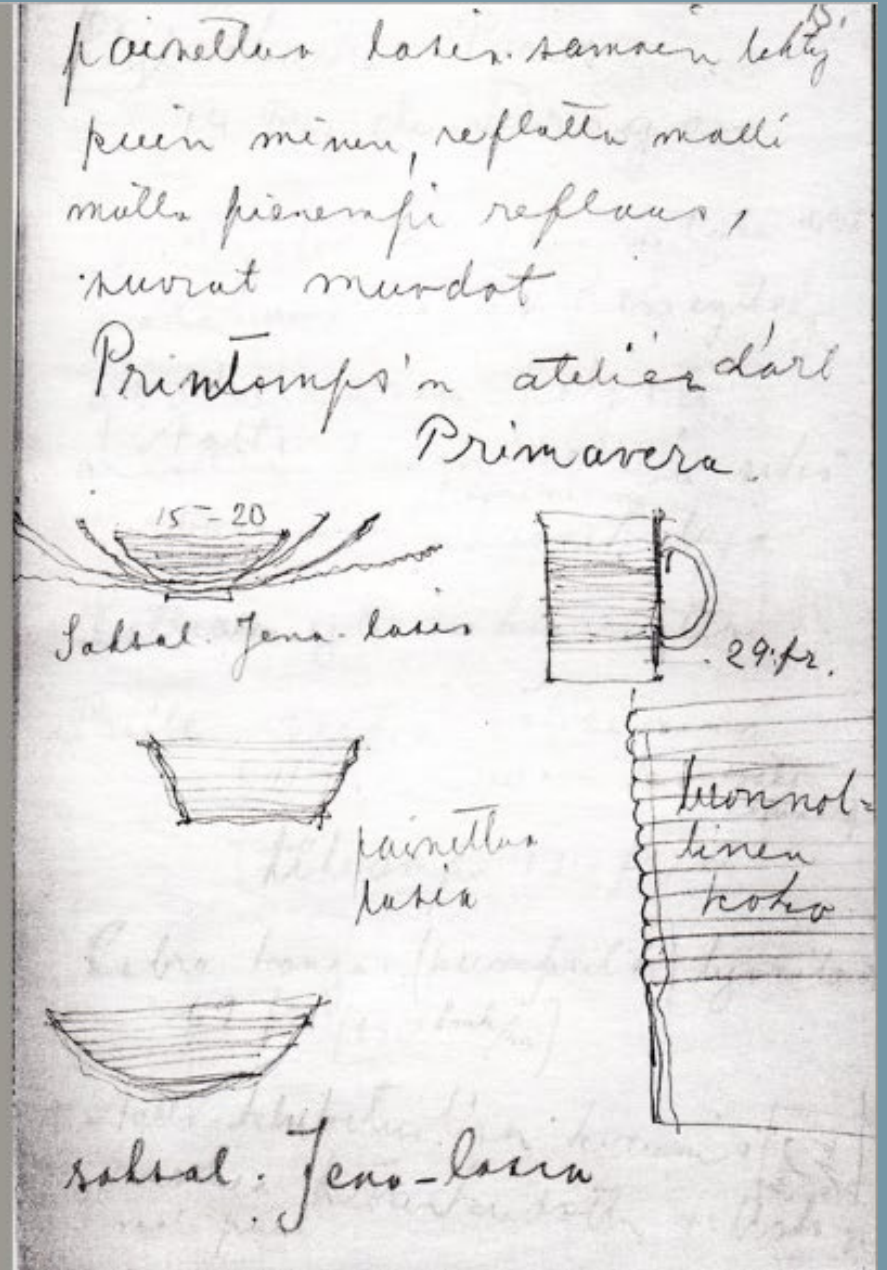 13.
painettua lasia. samoin tehty
kuin minun, reflattu malli
mutta pienempi reflaus,
suorat muodot
Printemps'n atelier d'art
Primavera
15-20
Saksal. Jena-lasia
29 fr.
luonnol=
linen
koko
painettua
lasia
saksal. Jena-lasia